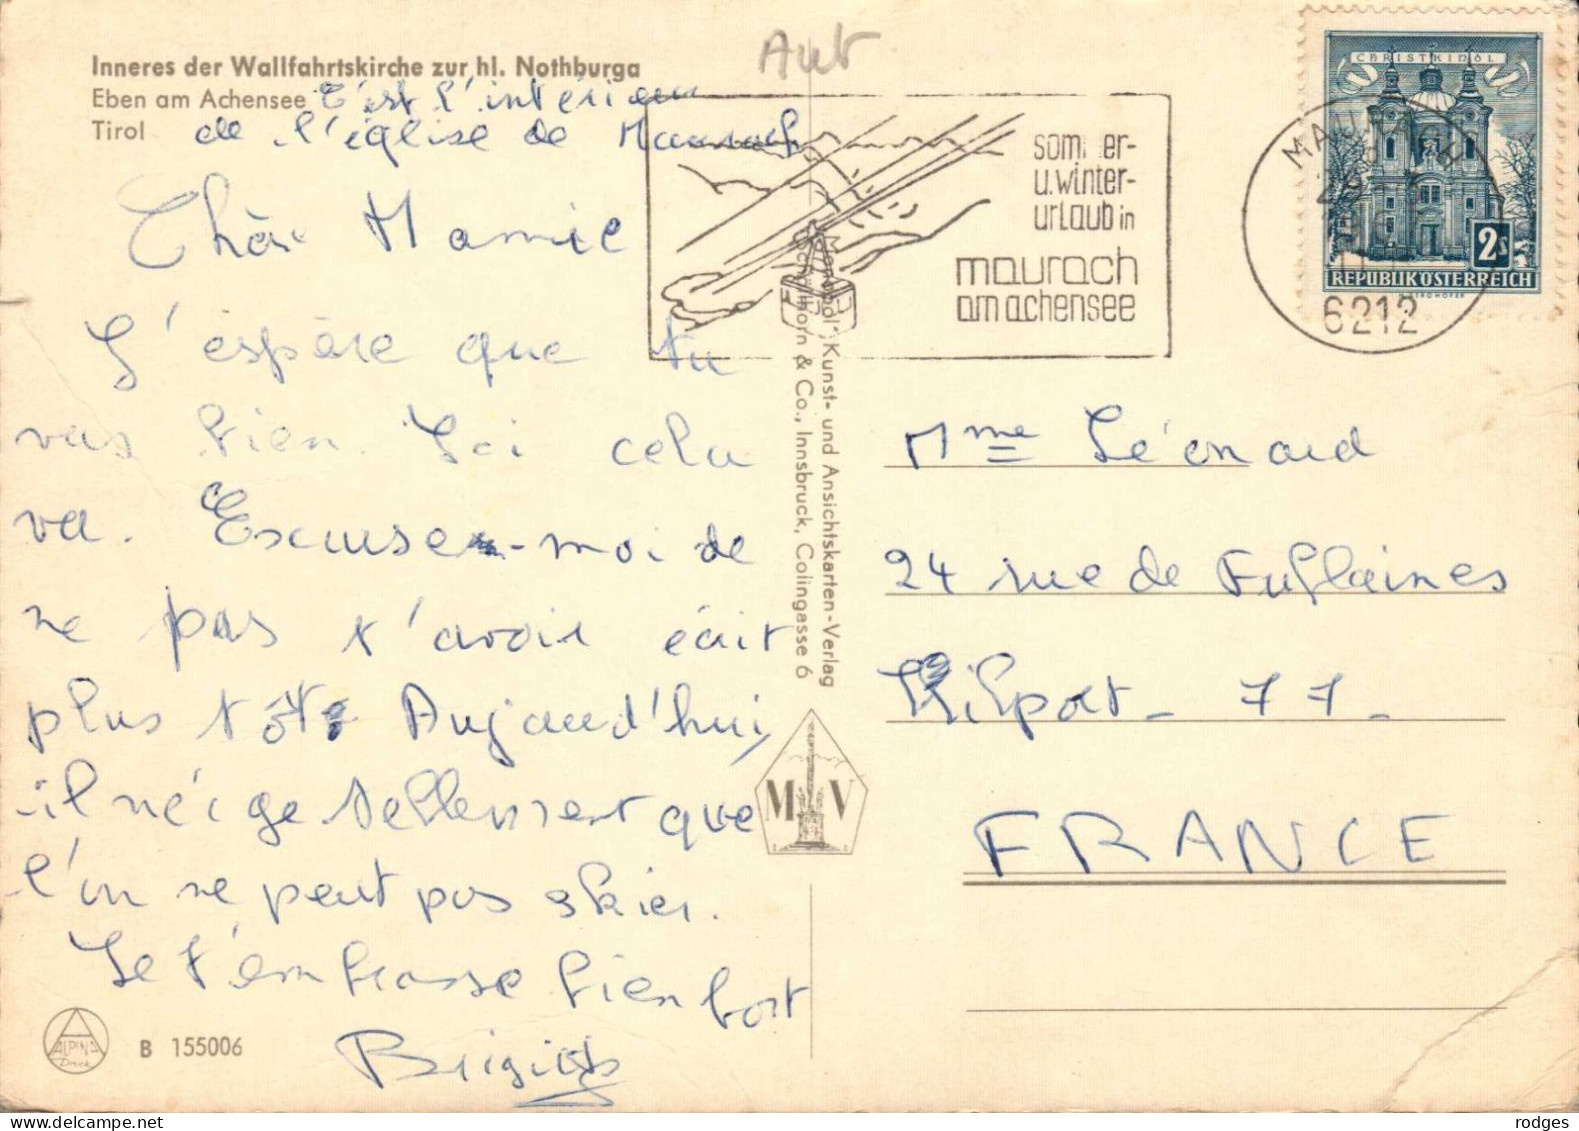 Inneres der Wallfahrtskirche zur hl. Nothburga
Eben am Achensee
Tirol
C'est l'intérieur
de l'église de Maurach
Aut
Chère Mamie
J'espère que tu
vas bien. Ici cela
va. Excuse-moi de
ne pas t'avoir écrit
plus tôt. Aujourd'hui,
il néige tellement que
l'on ne peut pas skier.
Je t'embrasse bien fort
Brigitte
ALPINA
Druck
B 155006
"Monopol" Kunst- und Ansichtskarten-Verlag
Schöllhorn & Co., Innsbruck, Colingasse 6
M V
sommer-
u.winter-
urlaub in
maurach
am achensee
MAURACH
6212
CHRISTKINDL
2s
REPUBLIK ÖSTERREICH
Mme Léonard
24 rue de
77 -
FRANCE
rodges